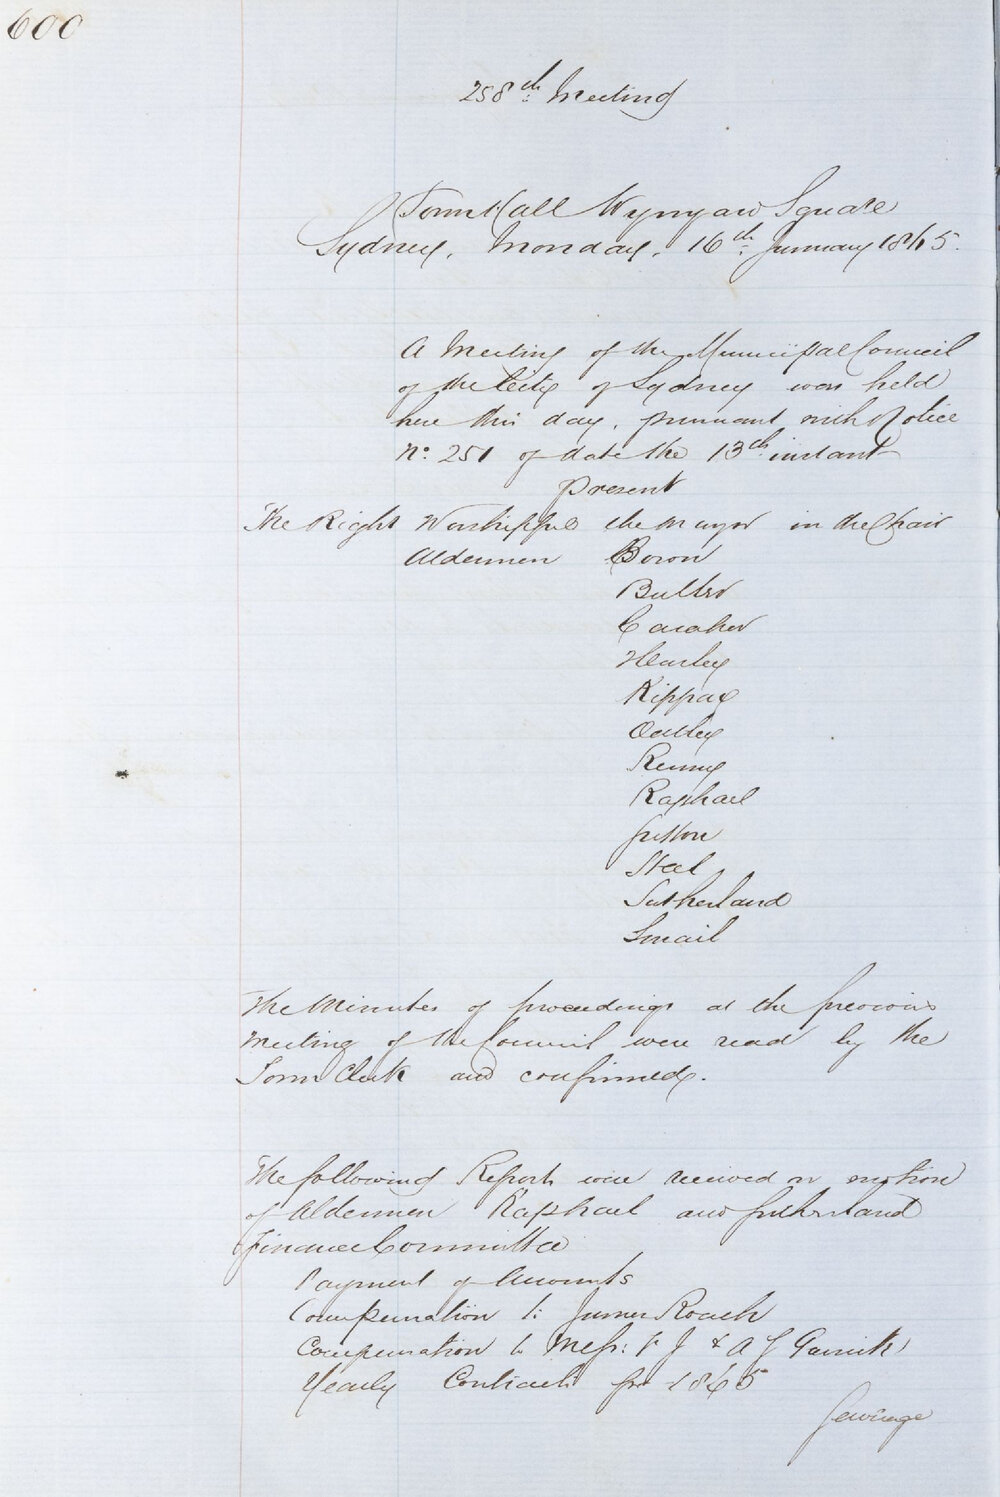 600
258th Meeting
Town Hall Wynyard Square
Sydney, Monday, 16th January 1865.
A Meeting of the Municipal Council
of the City of Sydney was held
here this day, pursuant with Notice
No. 251 of date the 13th instant
present
The Right Worshipful the Mayor in the Chair
Aldermen
Butler
Caraher
Hurley
Kippax
Oatley
Renny
Raphael
Sutton
Steel
Sutherland
Smail
The Minutes of proceedings at the previous
Meeting of the Council were read by the
Town Clerk and confirmed.
The following Reports were received on motion
of Aldermen Raphael and Sutherland
Finance Committee
Payment of Accounts
Compensation to James Roach
Compensation to Messrs: J & A
Yearly Contracts for 1865
Sewerage